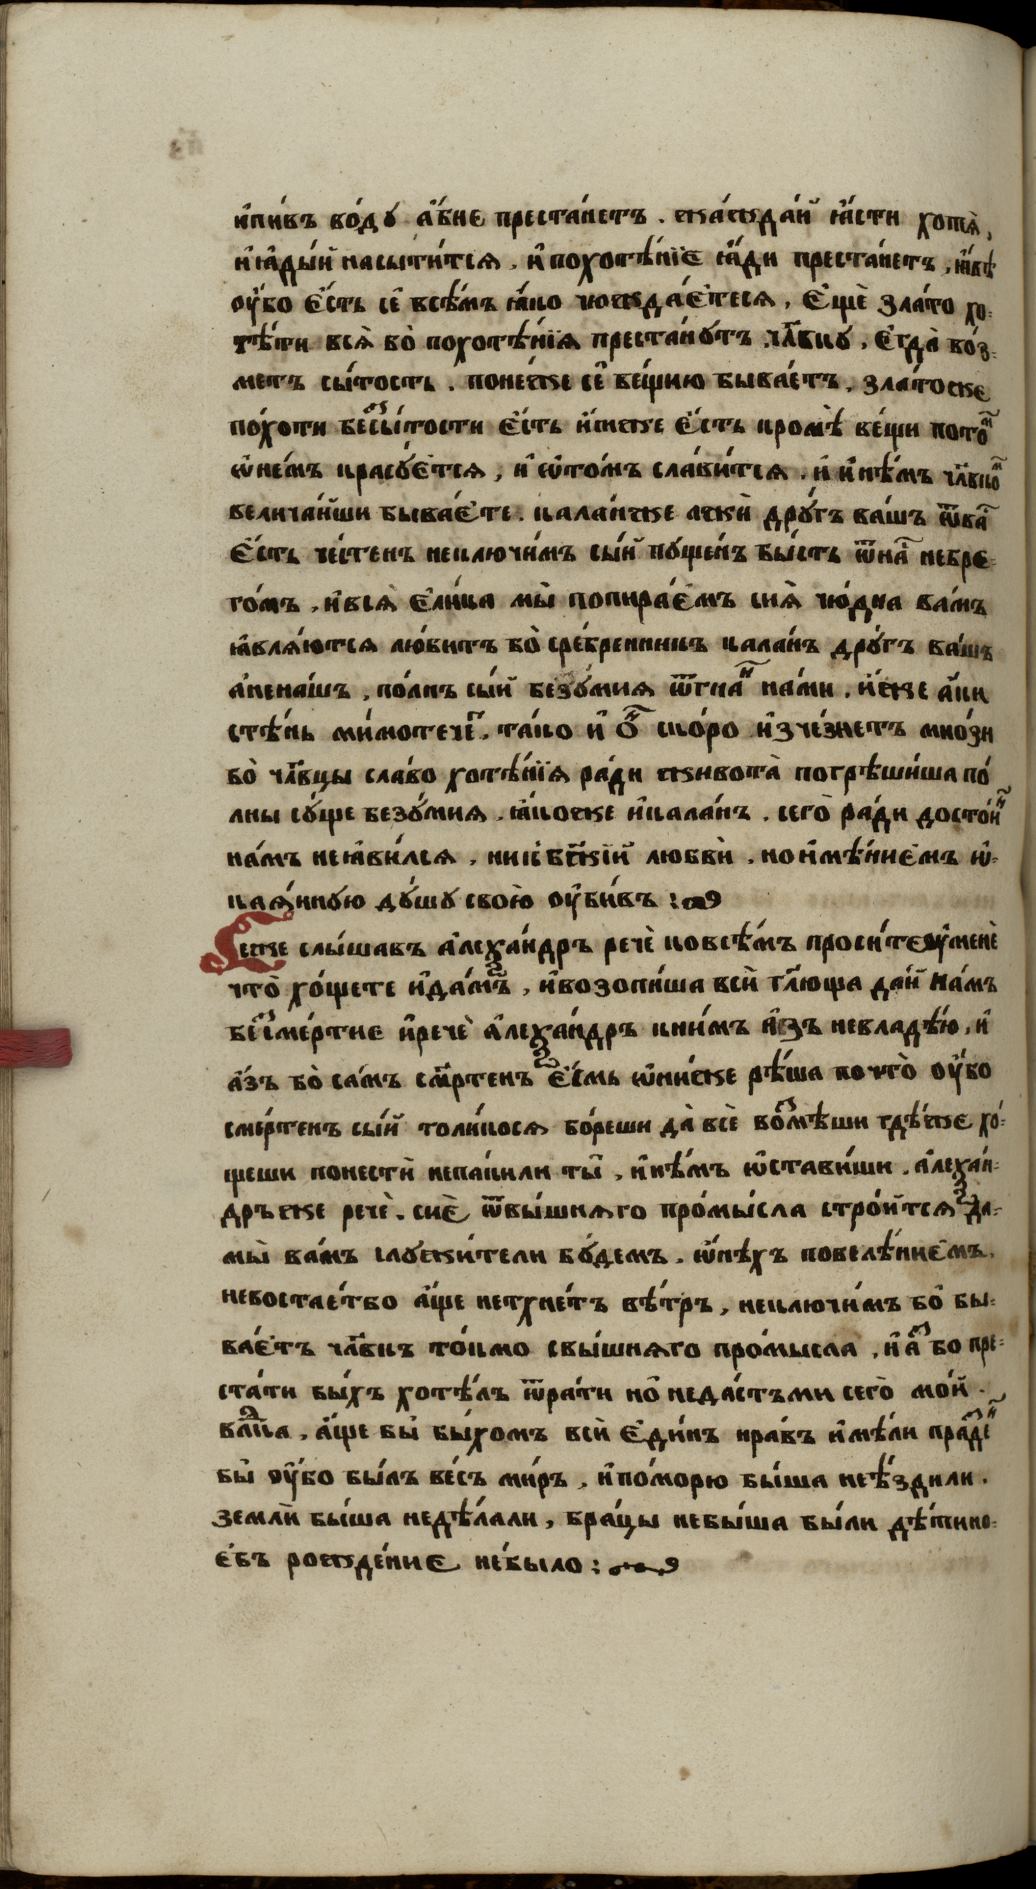 и҆пи́въ во́дꙋ а҆́бие преста́нетъ . жа́ждай ꙗ҆́сти хотѧ̀,
и҆ ꙗ҆ды́й насыти́тсѧ , и҆ похотѣ́нїе ꙗ҆́ди преста́нетъ , ꙗ҆́вѣ
оу҆́бо є҆́сть сѐ всѣ́мъ ꙗ҆́ко ꙋ҆ожда́етсѧ , є҆́ще зла́то хо-
тѣ́ти всѧ̀ бо похотѣ́нїѧ преста́нꙋтъ чл҃вкꙋ , є҆гда̀ во́з-
метъ сы́тость . поне́же сѐ ве́щию быва́етъ , зла́тоже
по́хоти бе⁠сы́тости є҆́сть и҆́же є҆́сть кромѣ̀ ве́щи пото́м
ѡ҆не́мъ красꙋ́етсѧ , и҆ ѡ҆то́мъ сла́витсѧ . и҆ и҆нѣ́мъ чл҃вко́м
велича́йши быва́ете . кала́нже ажѝ дрꙋ́гъ ва́шъ ѿва́с
є҆́сть че́стенъ неключи́мъ сы́й пꙋще́нъ бы́сть ѿна́с небре-
го́мъ , и҆всѧ̀ є҆ли́ка мы̀ попира́емъ сиѧ̀ чю́дна ва́мъ
ꙗ҆влѧ́ютсѧ лю́битъ бо̀ сре́бреникъ кала́нъ дрꙋ́гъ ва́шъ
а҆нена́шъ , по́лнъ сы́й безꙋ́миѧ ѿгна́н на́ми . и҆́же а҆́ки
стѣ́нь мимотече́т , та́ко и҆ о҆́н ско́ро и҆зче́знетъ мно́зи
бо̀ чл҃вцы сла́во хотѣ́нїѧ ра́ди живота̀ погрѣши́ша по́-
лны сꙋ́ще безꙋ́миѧ . ꙗ҆́коже и҆кала́нъ . сего̀ ра́ди досто́ин
на́мъ неꙗ҆ви́лсѧ , ник бж҃їй любвѝ , но и҆мѣ́ниемъ ѡ҆-
каѧ́ннꙋю дꙋ́шꙋ свою̀ оу҆би́въ :
Се́же слы́шавъ а҆леѯа́ндръ речѐ ковсѣ́мъ проси́те оу҆менѐ
что̀ хо́щете и҆да́мъ , и҆возопи́ша всѝ гл҃юща да́й на́мъ
бе⁠сме́ртие и҆речѐ а҆леѯа́ндръ кни́мъ а҆́зъ невладѣ́ю , и҆
а҆́зъ бо̀ са́мъ сме́ртенъ є҆́смь ѡ҆ни́же рѣ́ша почто̀ оу҆́бо
сме́ртенъ сы́й толи́косѧ бо́реши да̀ всѐ во́змѣши гдѣ́же хо́-
щеши понестѝ непа́кили ты̀ , и҆нѣ́мъ ѡ҆ста́виши . а҆леѯа́н-
дръже речѐ . сиѐ ѿвы́шнѧго про́мысла стро́итсѧ да-
мы̀ ва́мъ слꙋжи́тели бꙋ́демъ . ѡ҆нѣ́хъ повелѣ́ниемъ .
невостае́тбо а҆́ще нетхне́тъ вѣ́тръ , неключи́мъ бо̀ бы-
ва́етъ чл҃вкъ то́кмо свы́шнѧго про́мысла , и҆ а҆́з бо пре-
ста́ти бы́хъ хотѣ́лъ ѿра́ти но̀ неда́стъми сего̀ мо́й
влⷣка , а҆́ще бы̀ бы́хомъ всѝ є҆ди́нъ нра́въ и҆мѣ́ли пра́зде́н
бы̀ оу҆́бо бы́лъ ве́съ ми́ръ , и҆помо́рю бы́ша неѣ́здили .
землѝ бы́ша недѣ́лали , бра́цы небы́ша бы́ли дѣ́тико-
е́въ рожде́ние не́было :